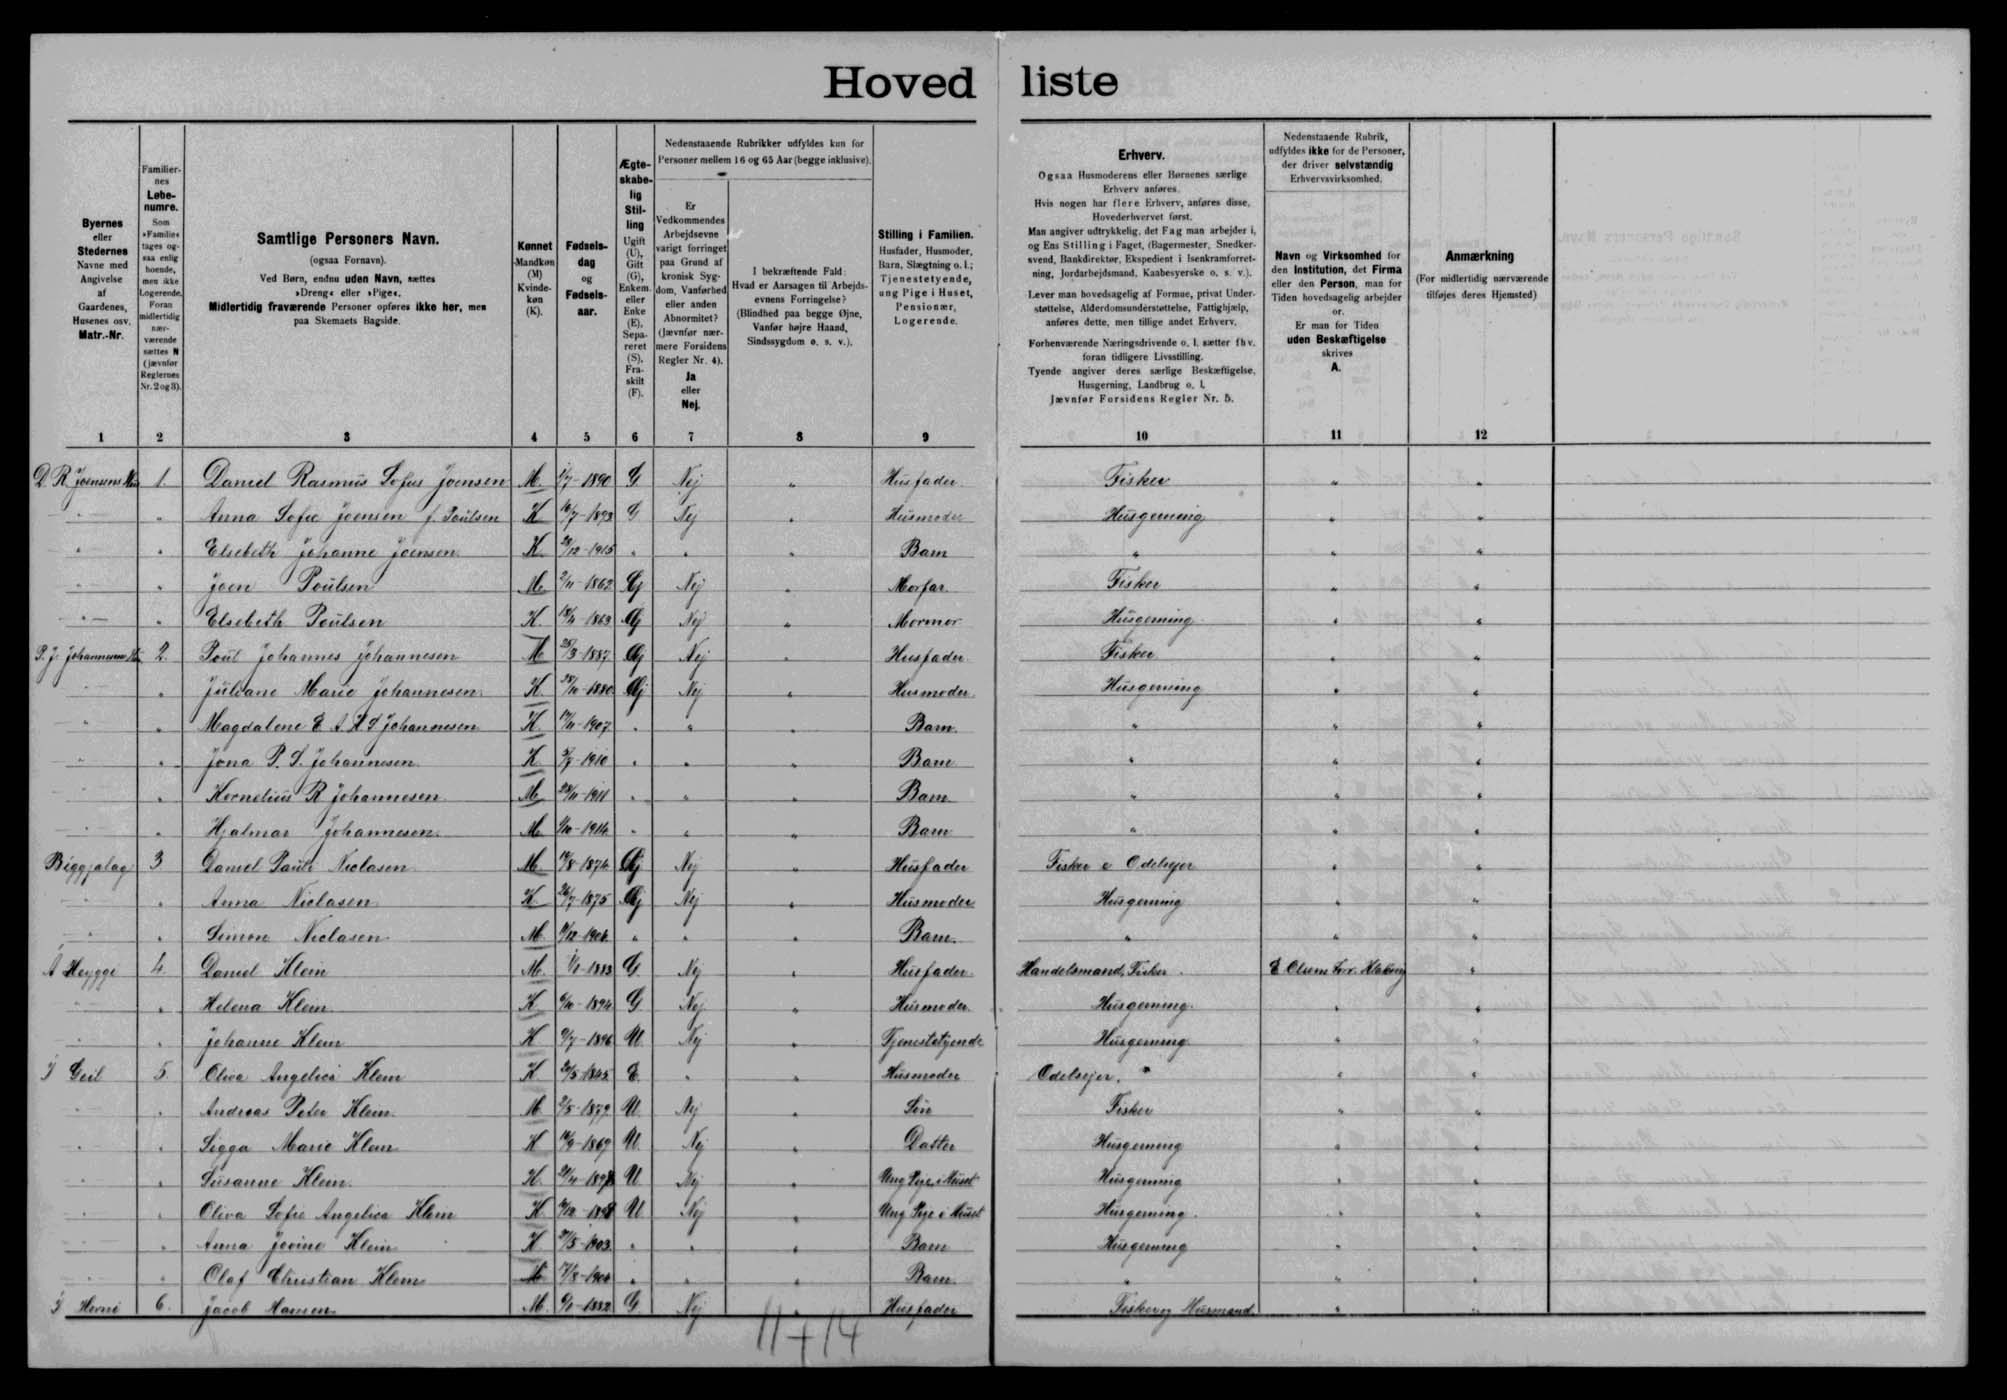 Hoved liste
Byernes eller Stedernes Navne med Angivelse af Gaardenes, Husenes osv. Matr.-Nr.
Familiernes Løbenumre. Som »Familie« tages ogsaa enlig boende, men ikke Logerende. Foran midlertidig nærværende sættes N (jævnfør Reglernes Nr. 2 og 3).
Samtlige Personers Navn. (ogsaa Fornavn). Ved Børn, endnu uden Navn, sættes »Dreng« eller »Pige«. Midlertidig fraværende Personer opføres ikke her, men paa Skemaets Bagside.
Kønnet Mandkøn (M) Kvindekøn (K).
Fødselsdag og Fødselsaar.
Ægteskabelig Stilling Ugift (U), Gift (G), Enkem. eller Enke (E), Separeret (S), Fraskilt (F).
Nedenstaaende Rubrikker udfyldes kun for Personer mellem 16 og 65 Aar (begge inklusive).
Er Vedkommendes Arbejdsevne varigt forringet paa Grund af kronisk Sygdom, Vanførhed eller anden Abnormitet? (Jævnfør nærmere Forsidens Regler Nr. 4). Ja eller Nej.
I bekræftende Fald: Hvad er Aarsagen til Arbejdsevnens Forringelse? (Blindhed paa begge Øjne, Vanfør højre Haand, Sindssygdom o. s. v.).
Stilling i Familien. Husfader, Husmoder, Barn, Slægtning o. l.; Tjenestetyende, ung Pige i Huset, Pensionær, Logerende.
Erhverv. Ogsaa Husmoderens eller Børnenes særlige Erhverv anføres. Hvis nogen har flere Erhverv, anføres disse, Hovederhvervet først. Man angiver udtrykkelig, det Fag man arbejder i, og Ens Stilling i Faget, (Bagermester, Snedkersvend, Bankdirektør, Ekspedient i Isenkramforretning, Jordarbejdsmand, Kaabesyerske o. s. v.). Lever man hovedsagelig af Formue, privat Understøttelse, Alderdomsunderstøttelse, Fattighjælp, anføres dette, men tillige andet Erhverv. Forhenværende Næringsdrivende o. l. sætter fhv. foran tidligere Livsstilling. Tyende angiver deres særlige Beskæftigelse, Husgerning, Landbrug o. l. Jævnfør Forsidens Regler Nr. 5.
Nedenstaaende Rubrik, udfyldes ikke for de Personer, der driver selvstændig Erhvervsvirksomhed.
Navn og Virksomhed for den Institution, det Firma eller den Person, man for Tiden hovedsagelig arbejder or. Er man for Tiden uden Beskæftigelse skrives A.
Anmærkning (For midlertidig nærværende tilføjes deres Hjemsted)
1 2 3 4 5 6 7 8 9 10 11 12
D. R. Joensens Hus 1. Daniel Rasmus Sofus Joensen M. /7-1890 G Nej " Husfader Fisker " "
" " Anna Sofie Joensen f. Poulsen K 16/7-1893 G Nej " Husmoder Husgerning " "
" " Elsebeth Johanne Joensen K 28/12-1915 " " " Barn " " "
" " Joen Poulsen M 2/11-1862 G Nej " Morfar Fisker " "
" " Elsebeth Poulsen K. 18/4-1863 G Nej " Mormor Husgerning " "
P. J. Johannesens Hus 2. Poul Johannes Johannesen M 28/3-1887 G Nej " Husfader Fisker " "
" " Juliane Marie Johannesen K. 28/10-1880 G Nej " Husmoder Husgerning " "
" " Magdalene E. A. K. S Johannesen K. 17/11-1907 " " " Barn " " "
" " Jona P. S. Johannesen K. 3/7-1910 " " " Barn " " "
" " Kornelius R Johannesen M 28/11-1911 " " " Barn " " "
" " Hjalmar Johannesen M. 1/10-1914 " " " Barn " " "
Biggjalag 3 Daniel Pauli Niclasen M 19/8-1874 G Nej " Husfader Fisker o Odelsejer " "
" " Anna Niclasen K 26/7-1875 G Nej " Husmoder Husgerning " "
" " Simon Niclasen M. 11/12-1906 " " " Barn. " " "
Á Heyggi 4. Daniel Klein M. 1/1-1883 G Nej " Husfader Handelsmand, Fisker E Olsens Forr. Klaksvig "
" " Helena Klein K 6/10-1894 G Nej " Husmoder Husgerning " "
" " Johanne Klein K 9/7-1896 U Nej " Tjenestetyende Husgerning " "
Í Geil 5. Oliva Angelica Klein K 24/5-1845 E. " " Husmoder Odelsejer. " "
" " Andreas Peter Klein M 2/5-1879 U Nej " Søn Fisker " "
" " Sigga Marie Klein K 14/9-1869 U. Nej " Datter Husgerning " "
" " Susanne Klein K. 24/4-1898 U Nej " Ung Pige i Huset Husgerning " "
" " Oliva Sofie Angelica Klein K. /12-1898 U Nej " Ung Pige i Huset Husgerning " "
" " Anna Jovine Klein K 27/5-1903 " " " Barn Husgerning " "
" " Olaf Christian Klein M 17/8-1906 " " " Barn. " " "
Í Horni 6. Jacob Hansen M. 6/1-1882 G Nej " Husfader Fisker og Husmand. " "
11 + 14